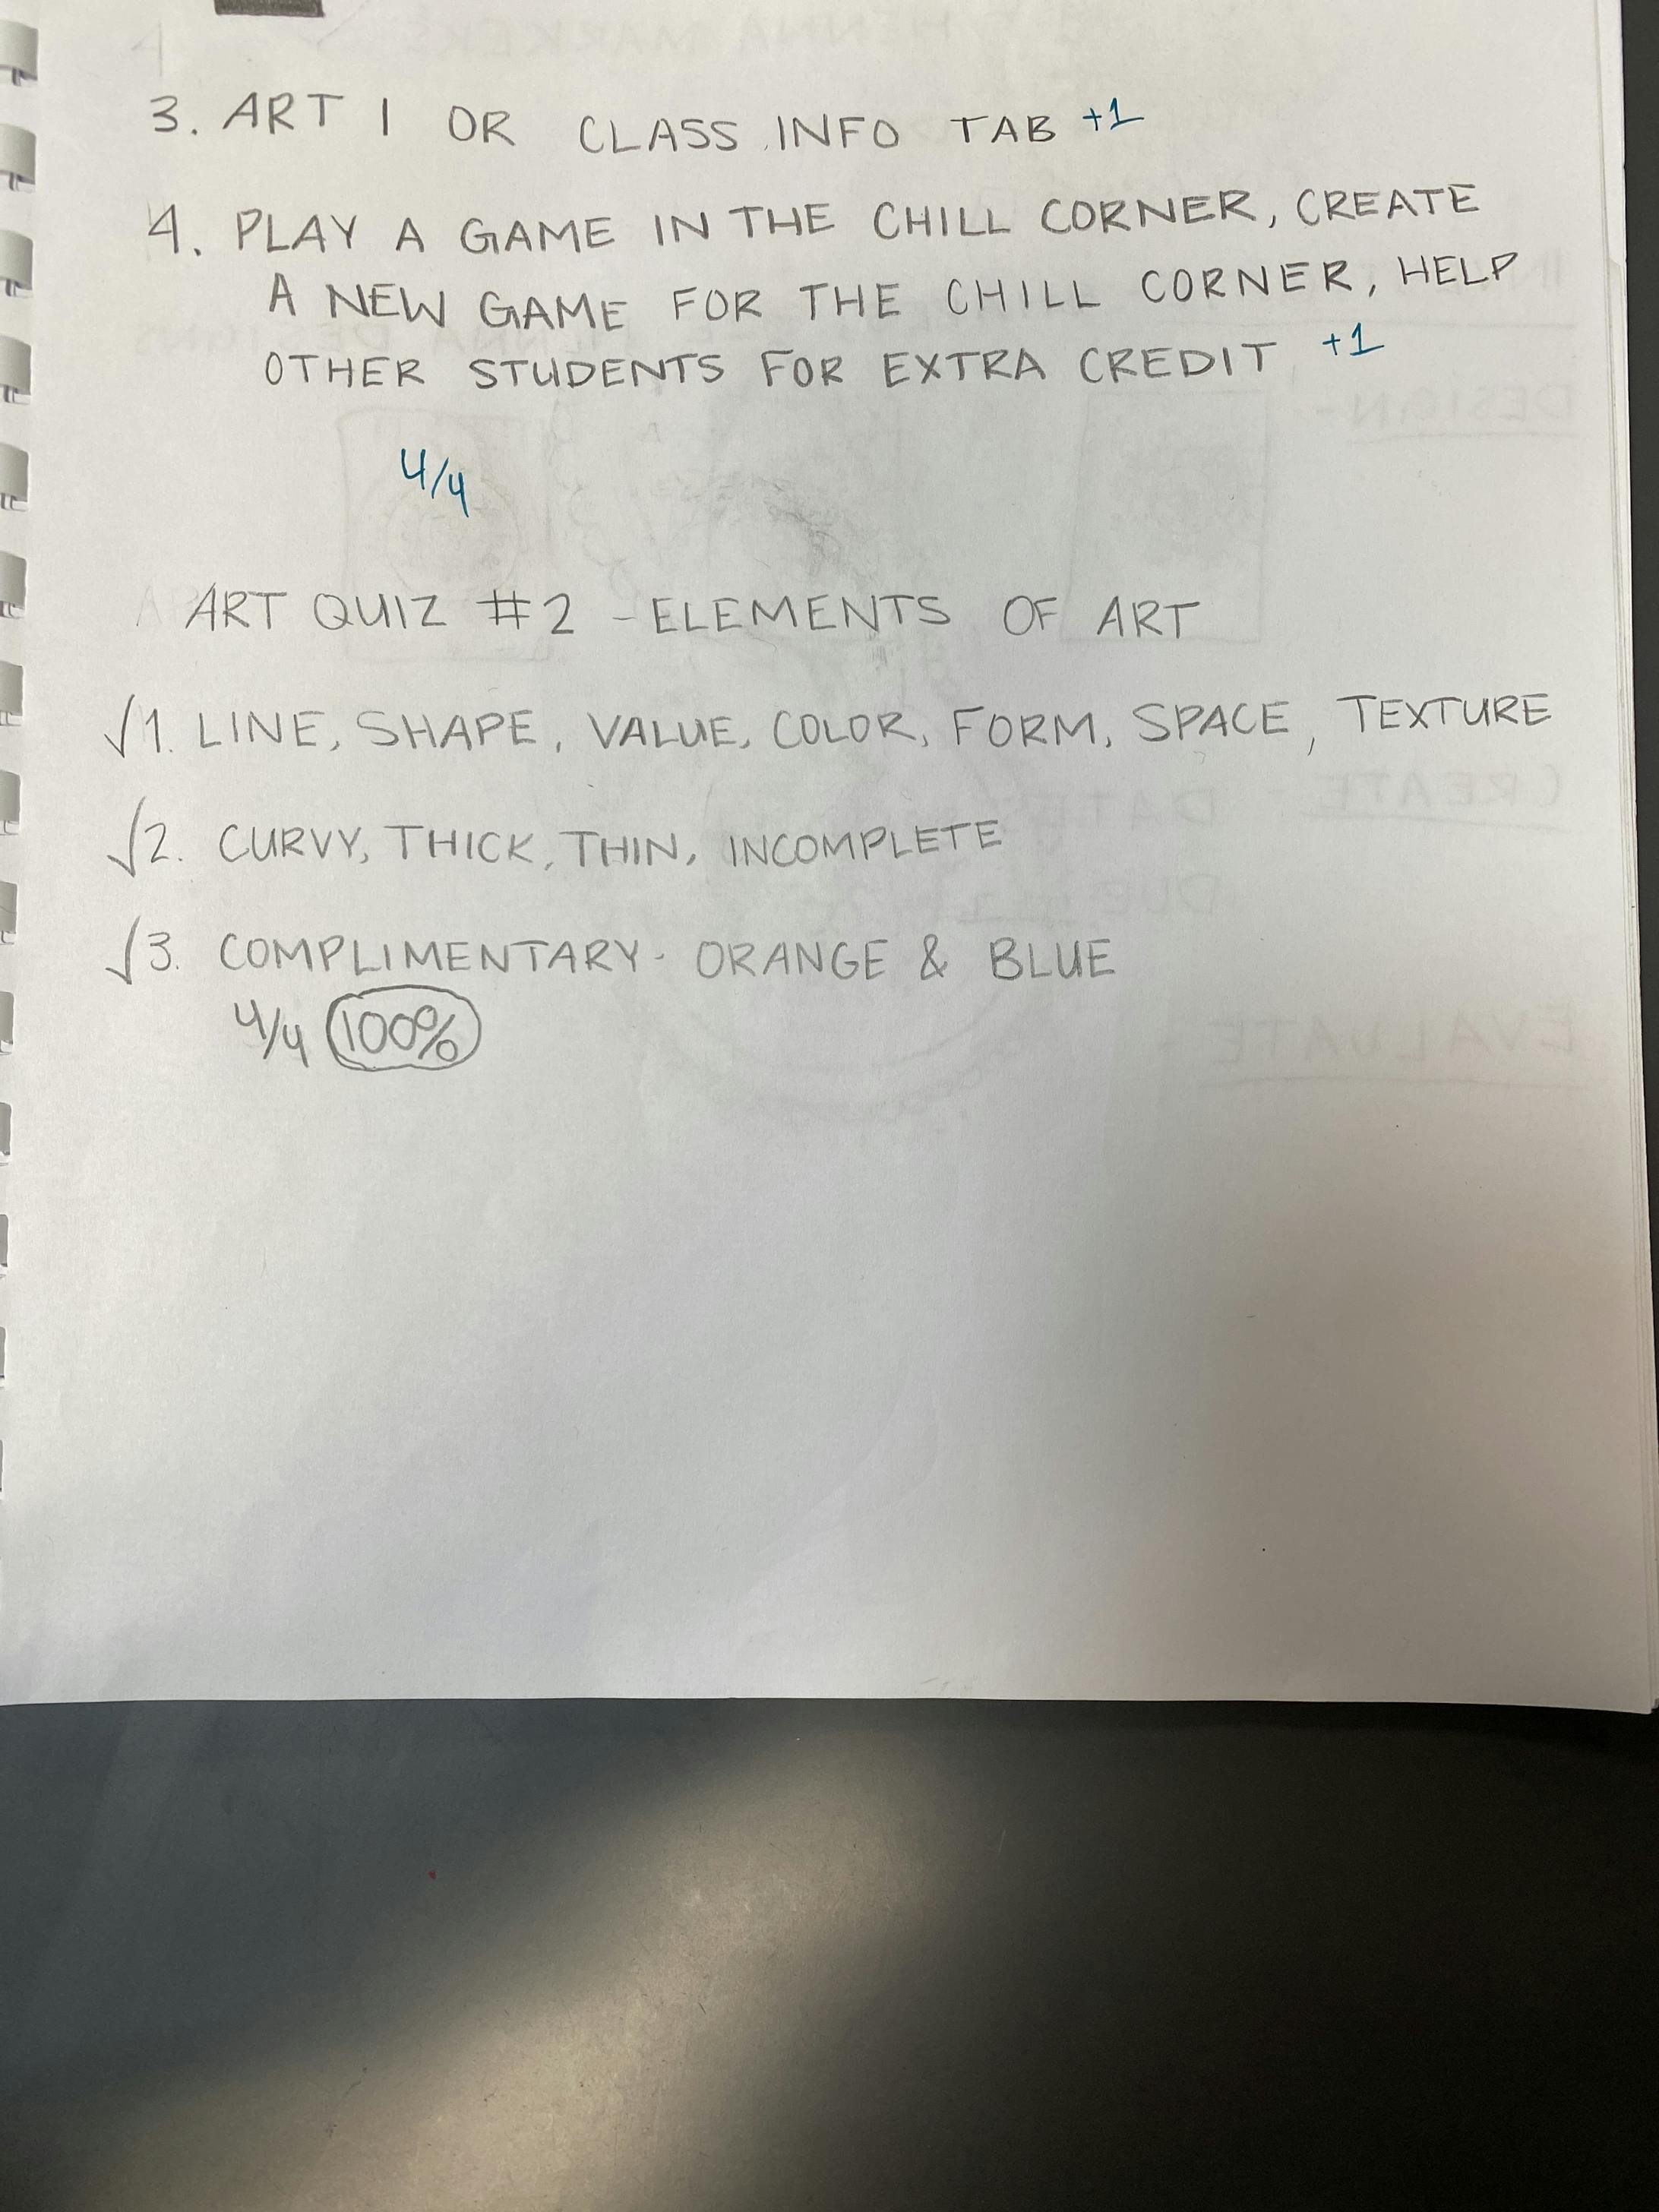 3. ART 1 OR CLASS INFO TAB +1
4. PLAY A GAME IN THE CHILL CORNER, CREATE
A NEW GAME FOR THE CHILL CORNER, HELP
OTHER STUDENTS FOR EXTRA CREDIT +1
4/4
ART QUIZ #2 - ELEMENTS OF ART
√1. LINE, SHAPE, VALUE, COLOR, FORM, SPACE, TEXTURE
√2. CURVY, THICK, THIN, INCOMPLETE
√3. COMPLIMENTARY - ORANGE & BLUE
4/4 100%